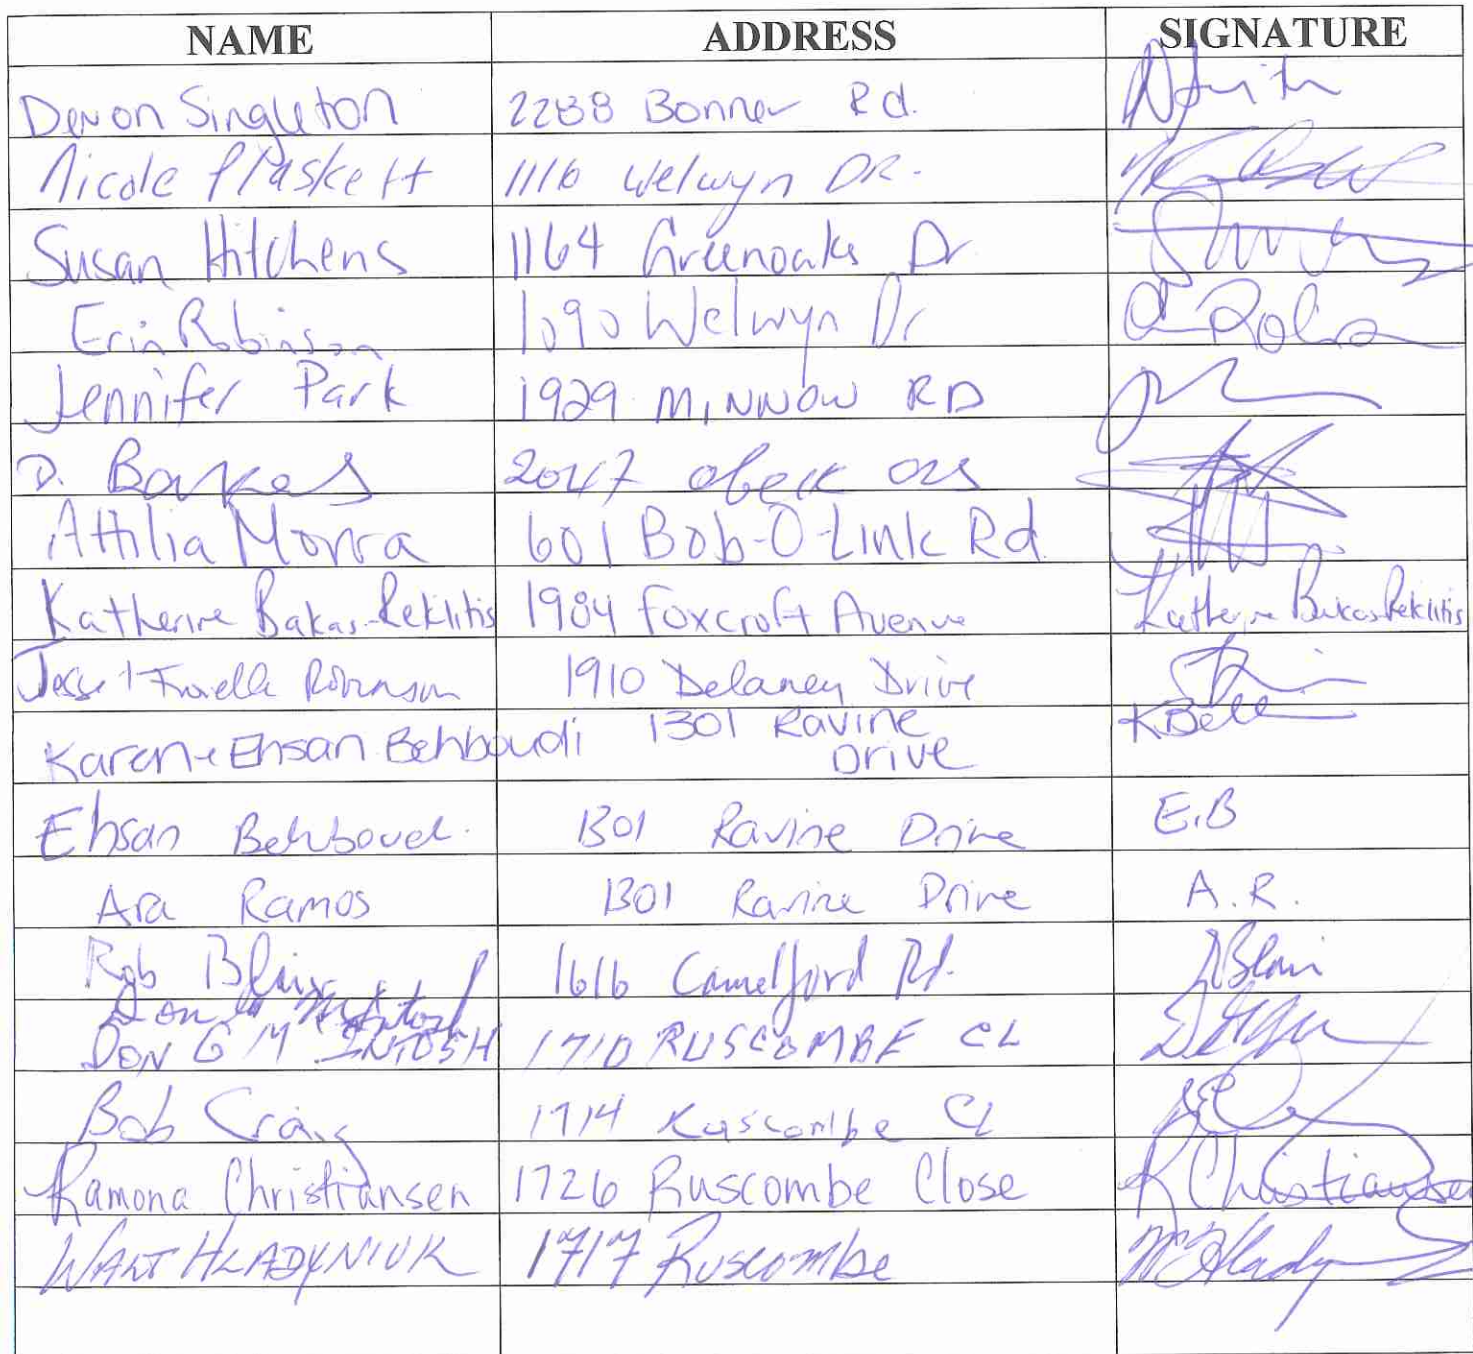 NAME ADDRESS SIGNATURE
Devon Singleton 2288 Bonner Rd.
Nicole Plaskett 1116 Welwyn DR.
Susan Hitchens 1164 Greenoaks Dr
Erin Robinson 1090 Welwyn Dr
Jennifer Park 1929 MINNOW RD
D. Bakas 2047
Attilia Morra 601 Bob-O-Link Rd
Katherine Bakas-Rekliitis 1984 Foxcroft Avenue Katherine Bakas Rekliitis
Jesse + Robinson 1910 Delaney Drive
Karen + Ehsan Behboudi 1301 Ravine Drive KBeh
Ehsan Behboudi 1301 Ravine Drive E.B
Ara Ramos 1301 Ravine Drive A.R.
Rob Blair 1616 Camelford Rd. RBlair
Don G McIntosh
DON G McINTOSH 1710 RUSCOMBE CL
Bob Craig 1714 Ruscombe CL
Ramona Christiansen 1726 Ruscombe Close R Christiansen
WALT HLADYNIUK 1717 Ruscombe W Hlady